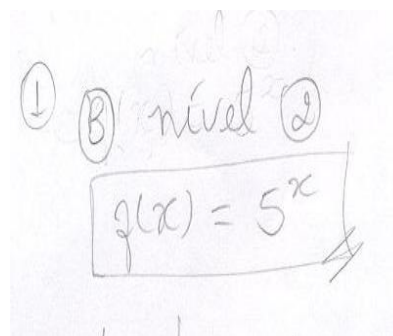 ① Ⓑ nível ②
f(x) = 5^x